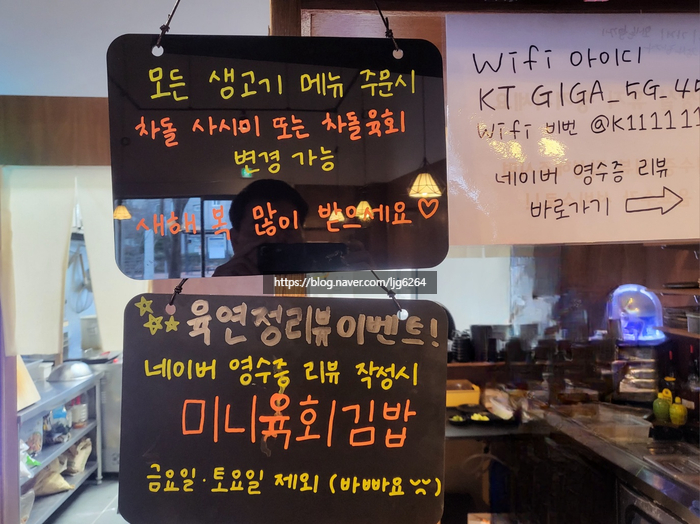 모든 생고기 메뉴 주문시
차돌 사시미 또는 차돌육회
변경 가능
새해 복 많이 받으세요♡
https://blog.naver.com/ljg6264
☆☆☆ 육연정리뷰이벤트!
네이버 영수증 리뷰 작성시
미니육회김밥
금요일·토요일 제외 (바빠요 ㅠㅠ)
Wifi 아이디
KT GIGA_5G_45
Wifi 비번 @K11111
네이버 영수증 리뷰
바로가기 ⇒